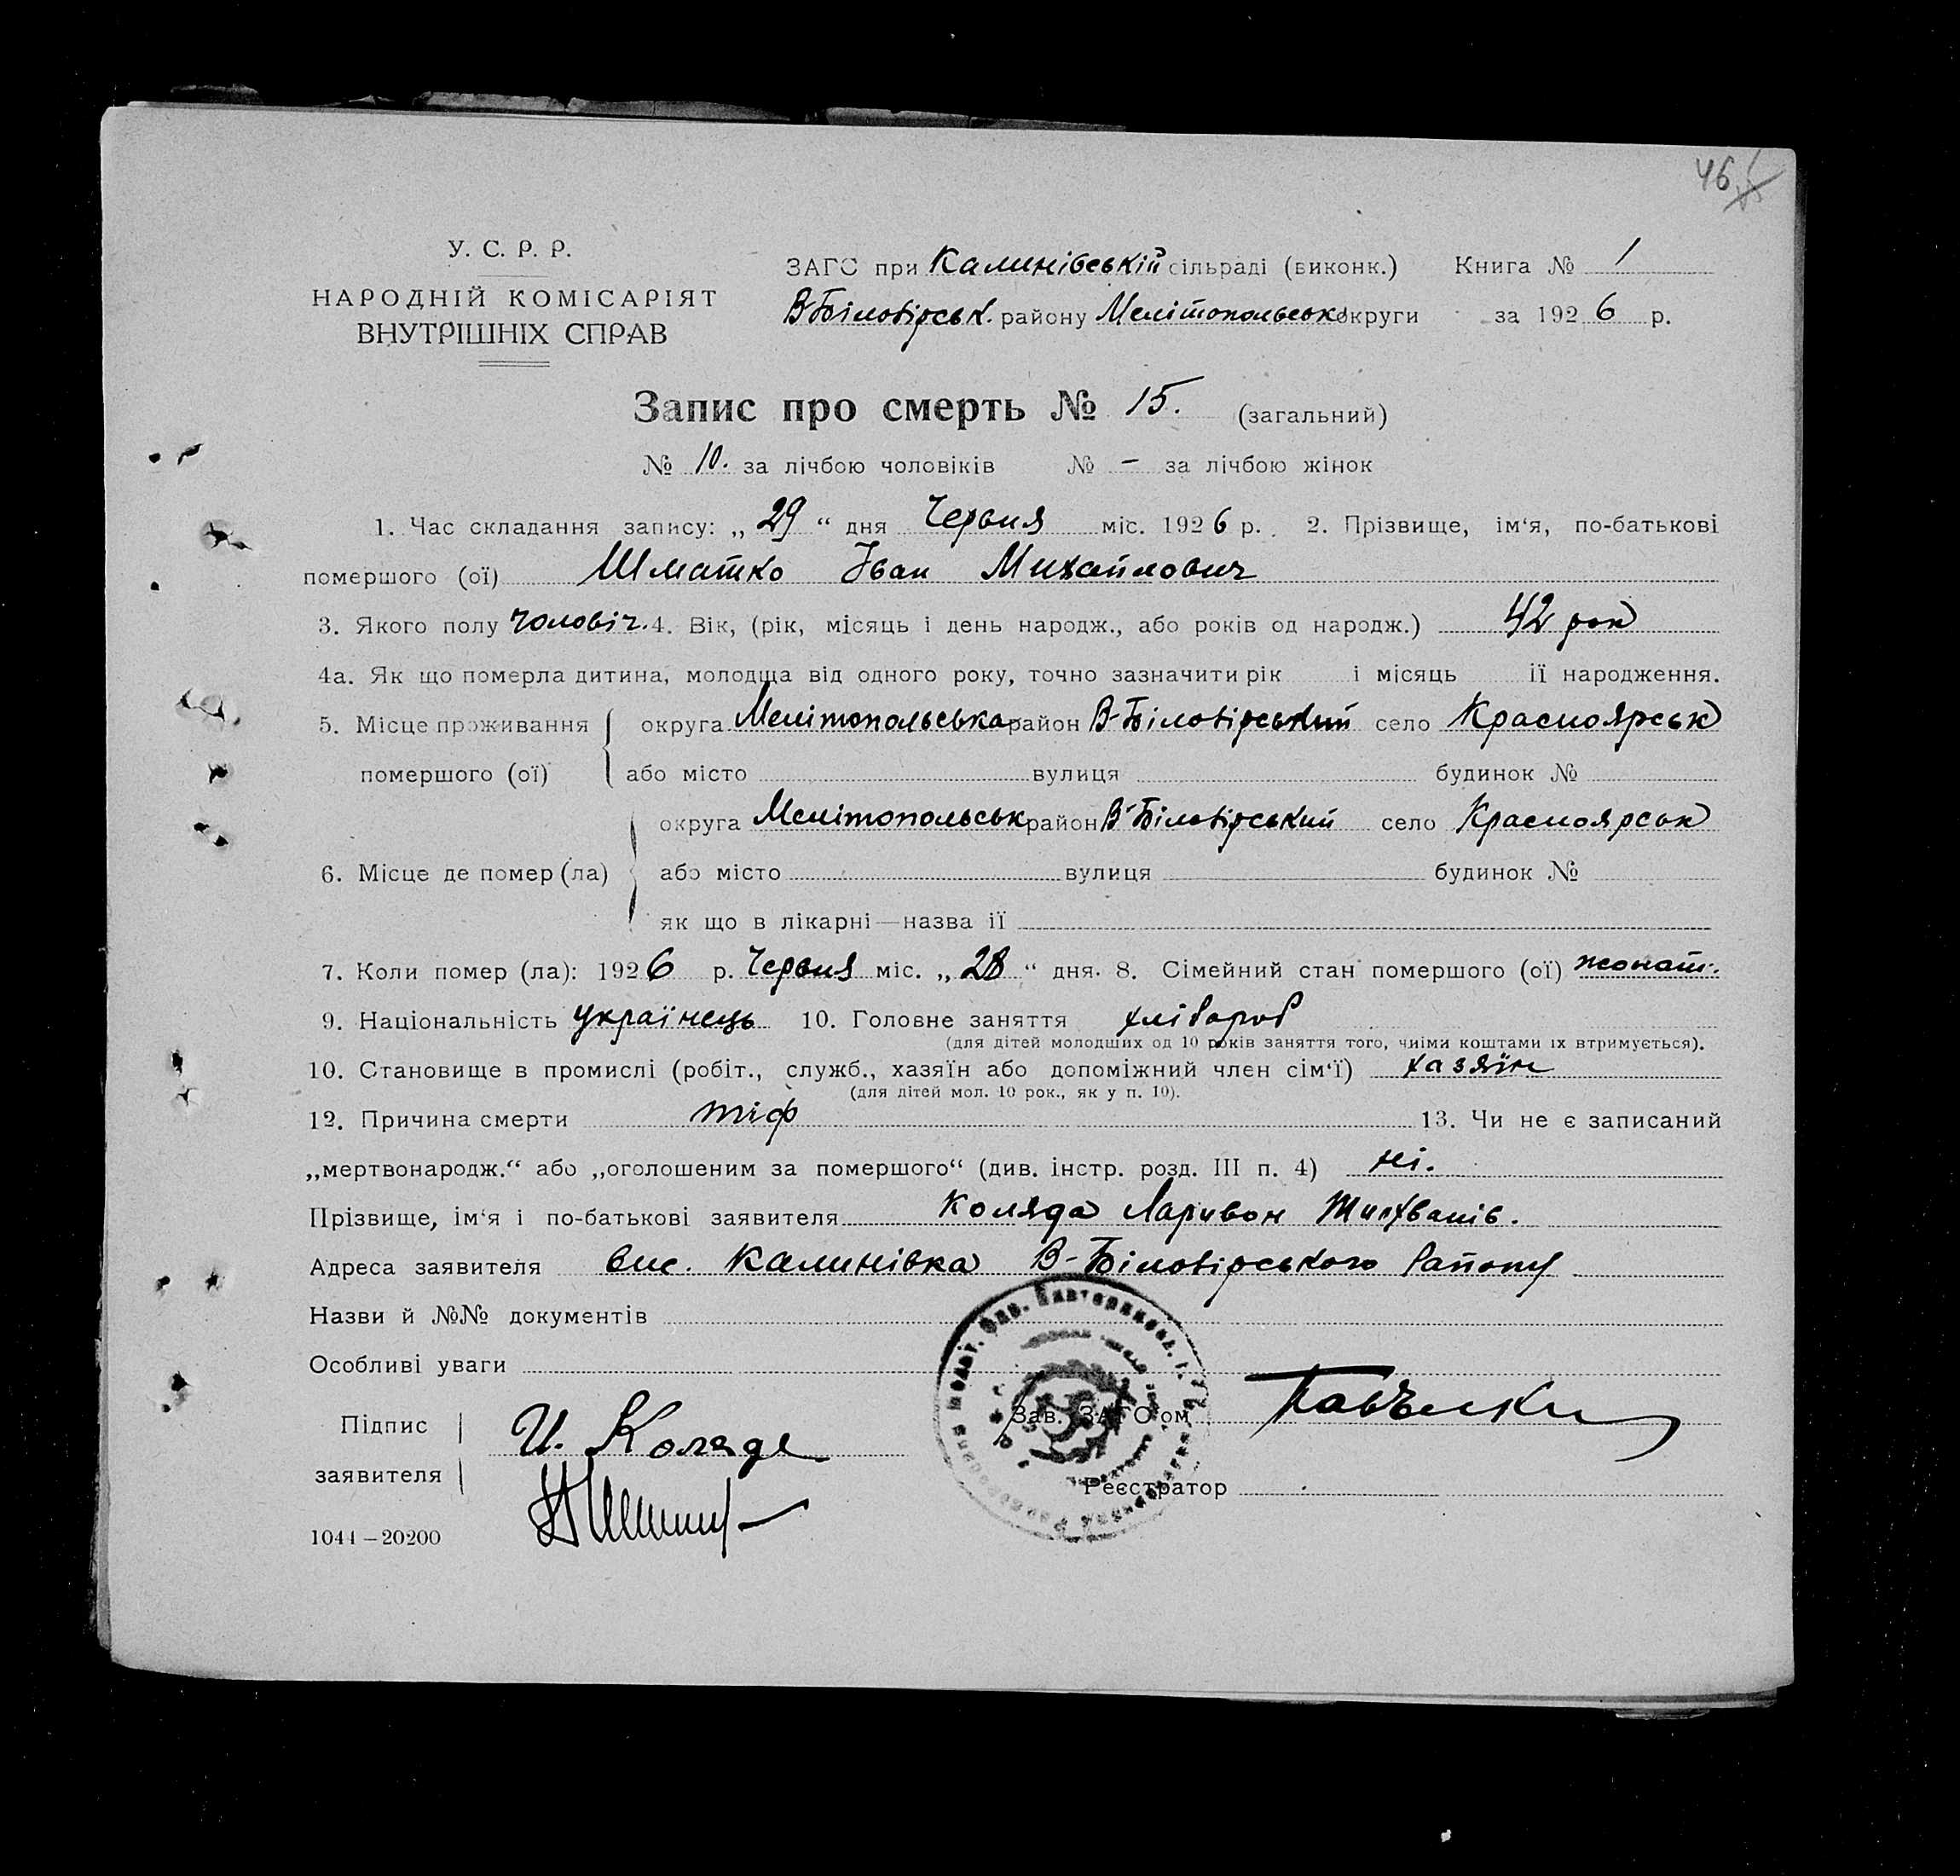 46
У. С. Р. Р.
НАРОДНІЙ КОМІСАРІЯТ
ВНУТРІШНІХ СПРАВ
ЗАГС при Калинівській сільраді (виконк.) Книга № 1
В-Білозірськ. району Мелітопольськ округи за 1926 р.
Запис про смерть № 15. (загальний)
№ 10. за лічбою чоловіків № – за лічбою жінок
1. Час складання запису: „29“ дня Червня міс. 1926 р. 2. Прізвище, ім‘я, по-батькові
помершого (ої) Шматко Іван Михайлович
3. Якого полу чоловіч. 4. Вік, (рік, місяць і день народж., або років од народж.) 42 рок
4а. Як що померла дитина, молодща від одного року, точно зазначити рік і місяць її народження.
5. Місце проживання помершого (ої) округа Мелітопольська район В-Білозірський село Красноярськ
або місто вулиця будинок №
6. Місце де помер (ла) округа Мелітопольськ район В-Білозірський село Красноярськ
або місто вулиця будинок №
як що в лікарні—назва її
7. Коли помер (ла): 1926 р. Червня міс. „28“ дня. 8. Сімейний стан помершого (ої) жонат.
9. Національність українець 10. Головне заняття хлібороб
(для дітей молодших од 10 років заняття того, чиїми коштами їх втримується).
10. Становище в промислі (робіт., служб., хазяїн або допоміжний член сім‘ї) хазяїн
(для дітей мол. 10 рок., як у п. 10).
12. Причина смерти тіф 13. Чи не є записаний
„мертвонародж.“ або „оголошеним за помершого“ (див. інстр. розд. III п. 4) ні.
Прізвище, ім‘я і по-батькові заявителя Коляда Ларивон
Адреса заявителя вис. Калинівка В-Білозірського Району
Назви й №№ документів
Особливі уваги
Підпис заявителя И. Коляда
Зав. ЗАГС‘ом
Реєстратор
1044–20200